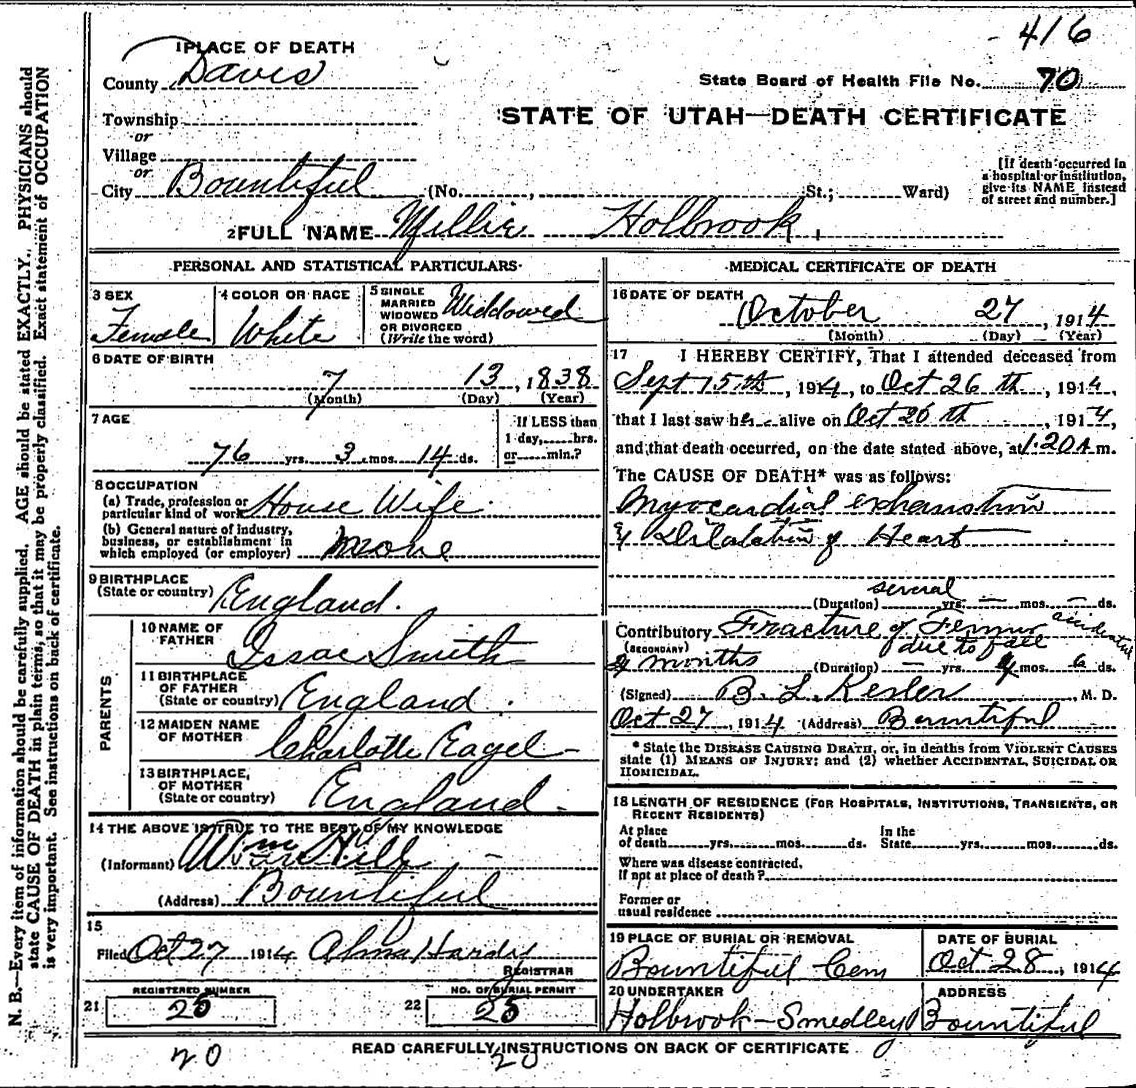 416
1 PLACE OF DEATH
County Davis
State Board of Health File No. 70
Township
or
Village
or
City Bountiful (No. St.; Ward)
STATE OF UTAH—DEATH CERTIFICATE
[If death occurred in
a hospital or institution,
give its NAME instead
of street and number.]
2 FULL NAME Millie Holbrook
PERSONAL AND STATISTICAL PARTICULARS
3 SEX
Female
4 COLOR OR RACE
White
5 SINGLE
MARRIED
WIDOWED
OR DIVORCED
(Write the word)
Widdowed
6 DATE OF BIRTH
7 13, 1838
(Month) (Day) (Year)
7 AGE
76 yrs. 3 mos. 14 ds.
If LESS than
1 day, hrs.
or min.?
8 OCCUPATION
(a) Trade, profession or
particular kind of work House Wife
(b) General nature of industry,
business, or establishment in
which employed (or employer) None
9 BIRTHPLACE
(State or country) England.
PARENTS
10 NAME OF
FATHER Issac Smith
11 BIRTHPLACE
OF FATHER
(State or country) England.
12 MAIDEN NAME
OF MOTHER Charlotte Eagel
13 BIRTHPLACE,
OF MOTHER
(State or country) England
14 THE ABOVE IS TRUE TO THE BEST OF MY KNOWLEDGE
(Informant) Wm Hill
(Address) Bountiful
15
Filed Oct 27 1914 Alma Hardy
REGISTRAR
21 REGISTERED NUMBER
25
22 NO. OF BURIAL PERMIT
25
MEDICAL CERTIFICATE OF DEATH
16 DATE OF DEATH
October 27, 1914
(Month) (Day) (Year)
17 I HEREBY CERTIFY, That I attended deceased from
Sept 15th, 1914, to Oct 26th, 1914,
that I last saw her alive on Oct 26th, 1914,
and that death occurred, on the date stated above, at 1:20 A m.
The CAUSE OF DEATH* was as follows:
Myocardial exhaustion
& Dilalation of Heart
several
(Duration) yrs. — mos. — ds.
Contributory Fracture of Femur accidental
(SECONDARY) due to fall
months (Duration) — yrs. mos. 6 ds.
(Signed) B. L. Kesler, M. D.
Oct 27, 1914 (Address) Bountiful
* State the DISEASE CAUSING DEATH, or, in deaths from VIOLENT CAUSES
state (1) MEANS OF INJURY; and (2) whether ACCIDENTAL, SUICIDAL OR
HOMICIDAL.
18 LENGTH OF RESIDENCE (FOR HOSPITALS, INSTITUTIONS, TRANSIENTS, OR
RECENT RESIDENTS)
At place
of death yrs. mos. ds.
In the
State yrs. mos. ds.
Where was disease contracted,
If not at place of death?
Former or
usual residence
19 PLACE OF BURIAL OR REMOVAL
Bountiful Cem
DATE OF BURIAL
Oct 28, 1914
20 UNDERTAKER
Holbrook-Smedley
ADDRESS
Bountiful
20 20
READ CAREFULLY INSTRUCTIONS ON BACK OF CERTIFICATE
N. B.—Every item of information should be carefully supplied. AGE should be stated EXACTLY. PHYSICIANS should
state CAUSE OF DEATH in plain terms, so that it may be properly classified. Exact statement of OCCUPATION
is very important. See instructions on back of certificate.